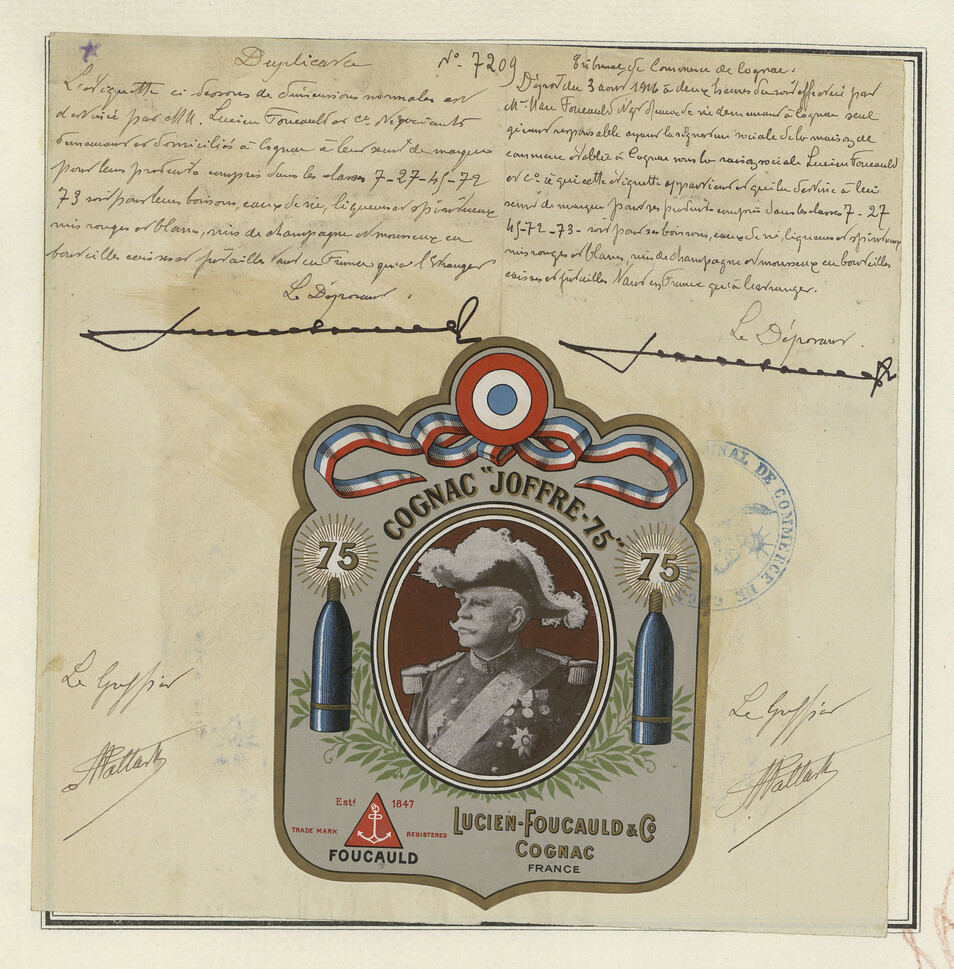 Duplicata
L'étiquette ci dessous de dimensions normales est
destinée par MM. Lucien Foucauld et Cie Négociants
demeurant et domiciliés à Cognac à leur servir de marque
pour leurs produits compris dans les classes 7-27-45-72
73 soit pour leurs boissons, eaux de vie, liqueurs et spiritueux
vins rouges et blancs, vins de champagne et mousseux en
bouteilles caisses et futailles tant en France qu'à l'Etranger
Le Déposant.
No. 7209
Tribunal de Commerce de Cognac.
Dépôt du 3 aout 1916 à deux heures du soir effectué par
Mr Marc Foucauld Negt d'eaux de vie demeurant à Cognac seul
gérant responsable ayant la signature sociale de la maison de
commerce établie à Cognac sous la raison sociale Lucien Foucauld
et Co à qui cette étiquette appartient et qui la destine à lui
servir de marque pour ses produits compris dans les classes 7-27
45-72-73- soit pour ses boissons, eaux de vie, liqueurs et spiritueux
vins rouges et blancs, vins de champagne et mousseux en bouteilles
caisses et futailles tant en France qu'à l'étranger.
Le Déposant.
COGNAC "JOFFRE-75"
75
75
TRIBUNAL DE COMMERCE DE COGNAC
Le Greffier
Le Greffier
Estd 1847
TRADE MARK REGISTERED
FOUCAULD
LUCIEN-FOUCAULD & Co
COGNAC
FRANCE